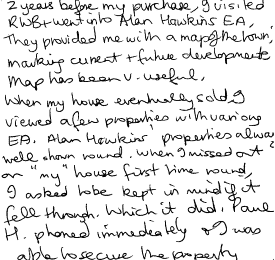 2 years before my purchase, I visited
RWB + went into Alan Hawkins EA,
They provided me with a map of the town,
marking current + future developments
Map has been v. useful,
When my house eventually sold, I
viewed a few properties with various
EA. Alan Hawkins' properties alwa
well shown round. When I missed out
on "my" house first time round,
I asked to be kept in mind if it
fell through. Which it did. Paul
H. phoned immediately & I was
able to secure the property